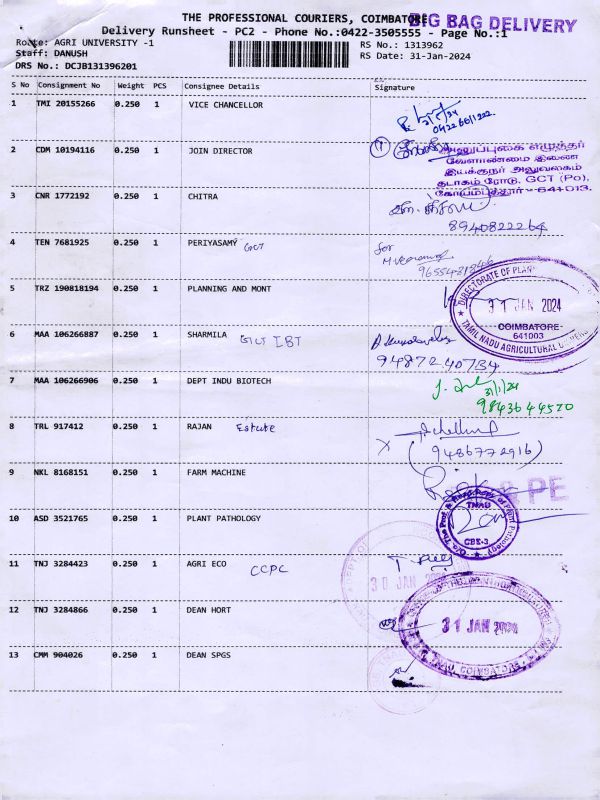 THE PROFESSIONAL COURIERS, COIMBATORE
BIG BAG DELIVERY
Delivery Runsheet - PC2 - Phone No.:0422-3505555 - Page No.:1
Route: AGRI UNIVERSITY -1
Staff: DANUSH
DRS No.: DCJB131396201
RS No.: 1313962
RS Date: 31-Jan-2024
S No Consignment No Weight PCS Consignee Details Signature
1 TMI 20155266 0.250 1 VICE CHANCELLOR
31/1/24
2 CDM 10194116 0.250 1 JOIN DIRECTOR
அனுப்புகை எழுத்தர்
வேளாண்மை இணை
இயக்குநர் அலுவலகம்
தடாகம் ரோடு, GCT (Po),
கோயம்புத்தூர் - 641013.
3 CNR 1772192 0.250 1 CHITRA
8940822264
4 TEN 7681925 0.250 1 PERIYASAMY GCT
for
5 TRZ 190818194 0.250 1 PLANNING AND MONT
DIRECTORATE OF PLAN
31 JAN 2024
COIMBATORE
641003
TAMIL NADU AGRICULTURAL
6 MAA 106266887 0.250 1 SHARMILA GCT IBT
9487240734
7 MAA 106266906 0.250 1 DEPT INDU BIOTECH
31/1/24
9843644570
8 TRL 917412 0.250 1 RAJAN Estate
(9486772916)
9 NKL 8168151 0.250 1 FARM MACHINE
10 ASD 3521765 0.250 1 PLANT PATHOLOGY
TNAU
CBE-3
11 TNJ 3284423 0.250 1 AGRI ECO CCPC
30 JAN
12 TNJ 3284866 0.250 1 DEAN HORT
31 JAN 2024
TNAU, COIMBATORE
13 CMM 904026 0.250 1 DEAN SPGS